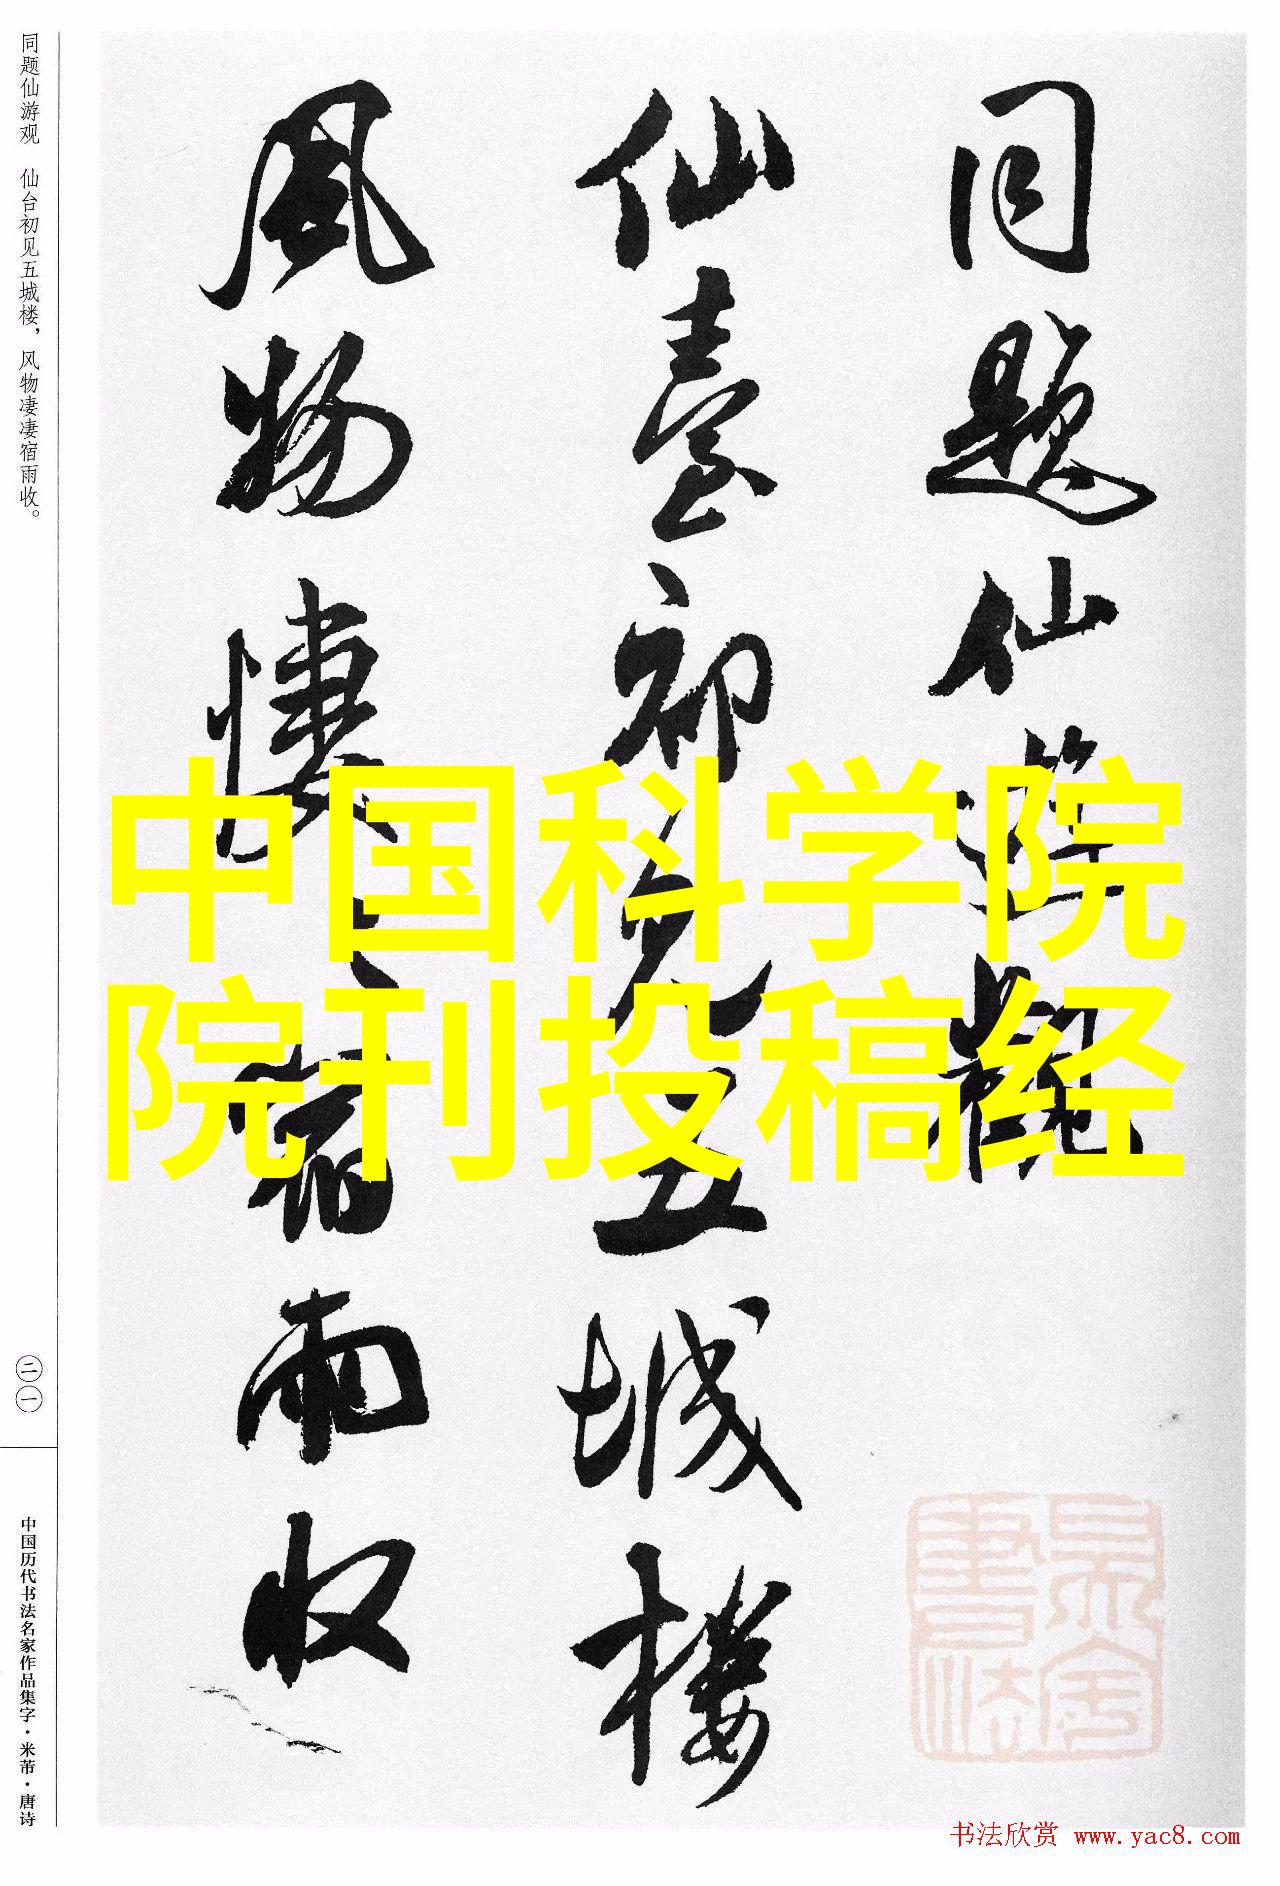 同题仙游观　仙台初见五城楼，风物凄凄宿雨收。
同题仙游觀
仙臺初见五城楼
风物悽〻宿雨收
中国科学院
院刊投稿经
二一
中国历代书法名家作品集字·米芾·唐诗
书法欣赏 www.yac8.com